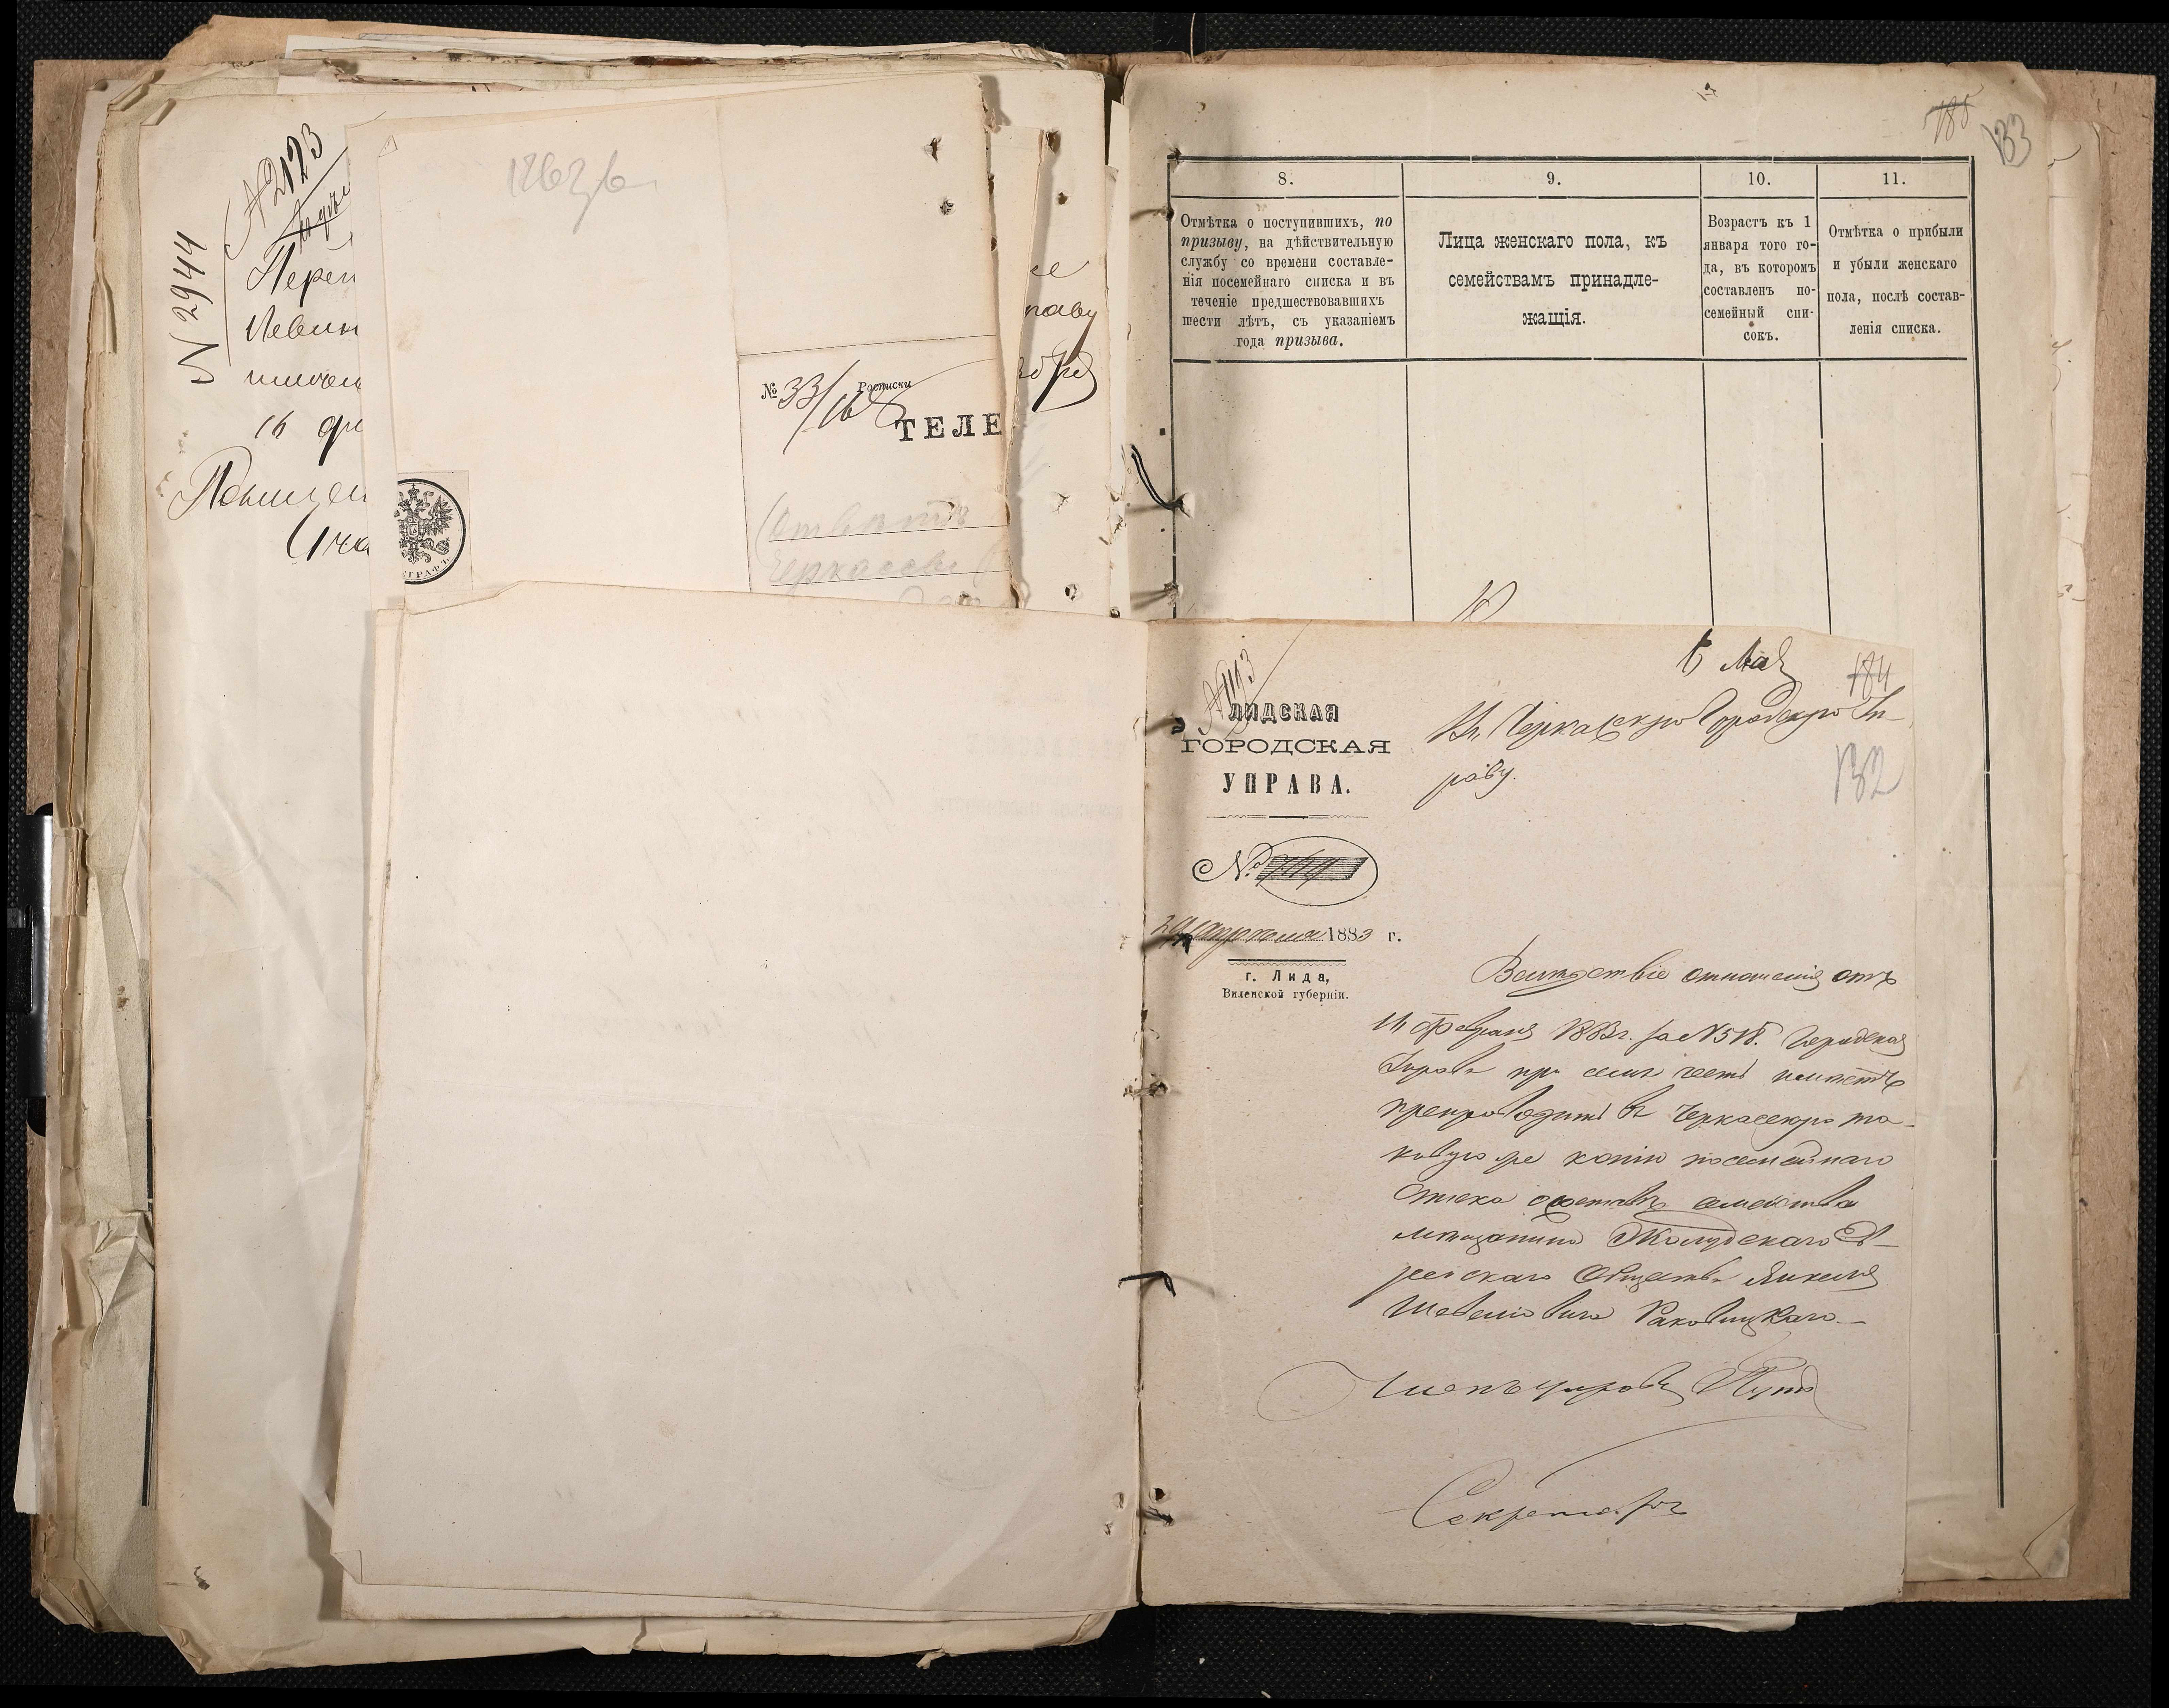 № 2944
№ 2123
Переп
Левин
16 фе
ТЕЛЕ
№ 33/
Росписки
Отвѣтъ
Черкассы
раву
185
133
8.
9.
10.
11.
Отмѣтка о поступившихъ, по
призыву, на дѣйствительную
службу со времени составле-
нія посемейнаго списка и въ
теченіе предшествовавшихъ
шести лѣтъ, съ указаніемъ
года призыва.
Лица женскаго пола, къ
семействамъ принадле-
жащія.
Возрастъ къ 1
января того го-
да, въ которомъ
составленъ по-
семейный спи-
сокъ.
Отмѣтка о прибыли
и убыли женскаго
пола, послѣ состав-
ленія списка.
6 Мая
184
132
ЛИДСКАЯ
ГОРОДСКАЯ
УПРАВА.
№
апрѣля 1883 г.
г. Лида,
Виленской губерніи.
Въ Черкасскую Городскую Уп-
раву.
Вслѣдствіе отношенія отъ
Февраля 1883 г. за № 518. Городская
Управа при семъ честь имѣетъ
препроводить въ Черкасскую та-
ковую же копію посемейнаго
списка о составѣ семейства
мѣщанина Жолудскаго Ев-
рейскаго Общества Янкеля
Шевелевича Раковицкаго.
Членъ управы
Секретарь